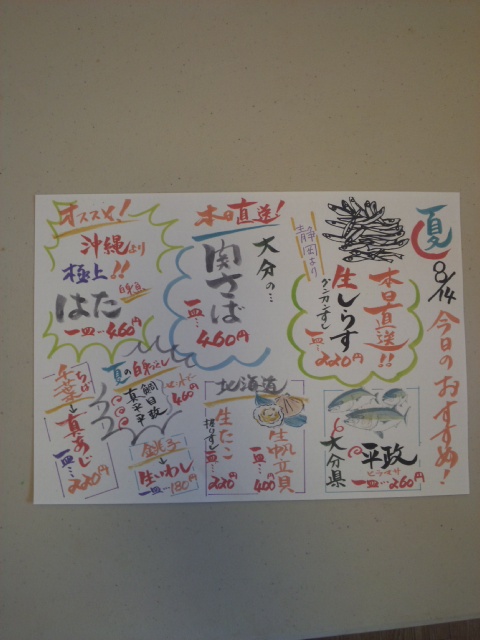 夏
8/14
今日のおすすめ!
静岡より
本日直送!!
生しらす
グンカンずし
一皿…220円
大分県
平政
ヒラマサ
一皿…260円
本日直送!
大分の…
関さば
一皿…
460円
北海道
生帆立貝
一皿…
400円
生たこ
握りずし
一皿…
220円
オススメ!
沖縄より
極上!!
はた
一皿…460円
夏の白身
真鯛
平目
平政
460円
生いわし
一皿…180円
千葉
ちば
真あじ
一皿…
220円